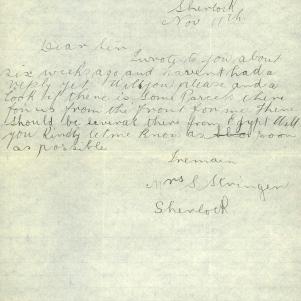 Sherlock
Nov 11th
Dear Sir
I wrote to you about
six weeks ago and havent had a
reply yet Will you please and a
look if there is some Parcels there
for us from the front for me There
should be several there from Egypt Will
you Kindly let me know as soon
as possible
I remain
Mrs S Stringer
Sherlock